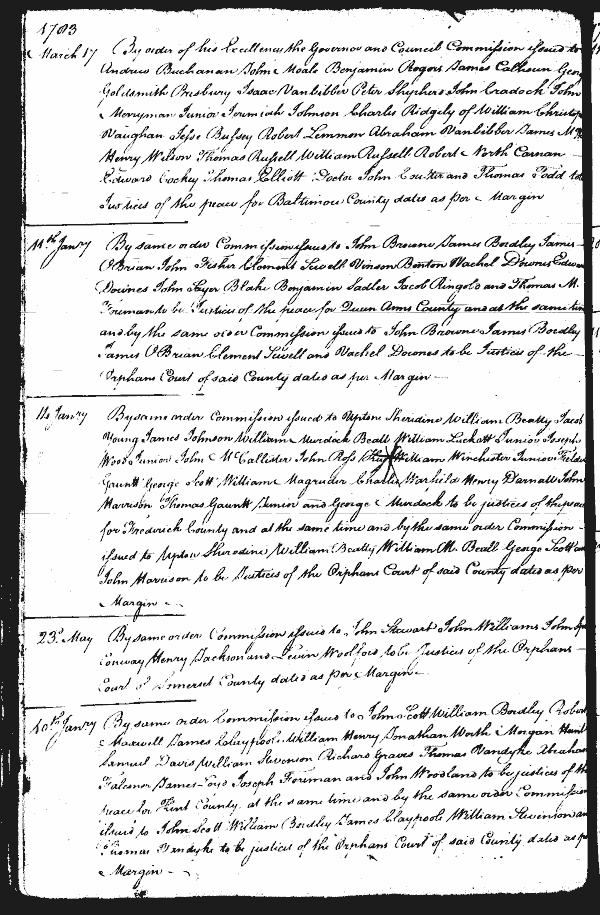 1783
March 17 By order of his Excellency the Governor and Council Commission issued to
Andrew Buchanan John Moale Benjamin Rogers James Calhoun Geor
Goldsmith Presbury Isaac Vanbibber Peter Shepherd John Cradock John
Merryman Junior Jeremiah Johnson Charles Ridgely of William Christop
Vaughan Jesse Bussey Robert Lemmon Abraham Vanbibber James Mc
Henry Wilson Thomas Russell William Russell Robert North Carnan
Edward Cockey Thomas Elliott Doctor John Coulter and Thomas Todd to be
Justices of the peace for Baltimore County dated as per Margin
11th Janry By same order Commission issued to John Browne James Bordley James
O'Brian John Fisher Clement Sewell Vinson Benton Vachel Downes Edwar
Downes John Sayer Blake Benjamin Sadler Jacob Ringold and Thomas M.
Foreman to be Justices of the peace for Queen Anns County and at the same time
and by the same order Commission issued to John Browne James Bordley
James O'Brian Clement Sewell and Vachel Downes to be Justices of the
Orphans Court of said County dated as per Margin
14 Janry By same order Commission issued to Upton Sheridine William Beatty Jacob
Young James Johnson William Murdock Beall William Luckett Junior Joseph
Wood Junior John McCallister John Ross William Winchester Junior
Gauntt George Scott William Magruder Charles Warfield Henry Darnall John
Harrison Thomas Gauntt Junior and George Murdock to be justices of the peac
for Frederick County and at the same time and by the same order Commission
issued to Upton Sheredine William Beatty William M. Beall George Scott an
John Harrison to be Justices of the Orphans Court of said County dated as per
Margin
23d May By same order Commission issued to John Stewart John Williams John
Conway Henry Jackson and Levin Woolford to be Justices of the Orphans
Court of Somerset County dated as per Margin
10th Janry By same order Commission issued to John Scott William Bordley Robert
Maxwell James Claypoole William Henry Jonathan Worth Morgan
Samuel Davis William Stevenson Richard Graves Thomas Vandyke Abraham
Falconer James Loyd Joseph Foreman and John Woodland to be justices of the
peace for Kent County, at the same time and by the same order Commission
issued to John Scott William Bordley James Claypoole William Stevenson an
Thomas Vandyke to be justices of the Orphans Court of said County dated as p
Margin